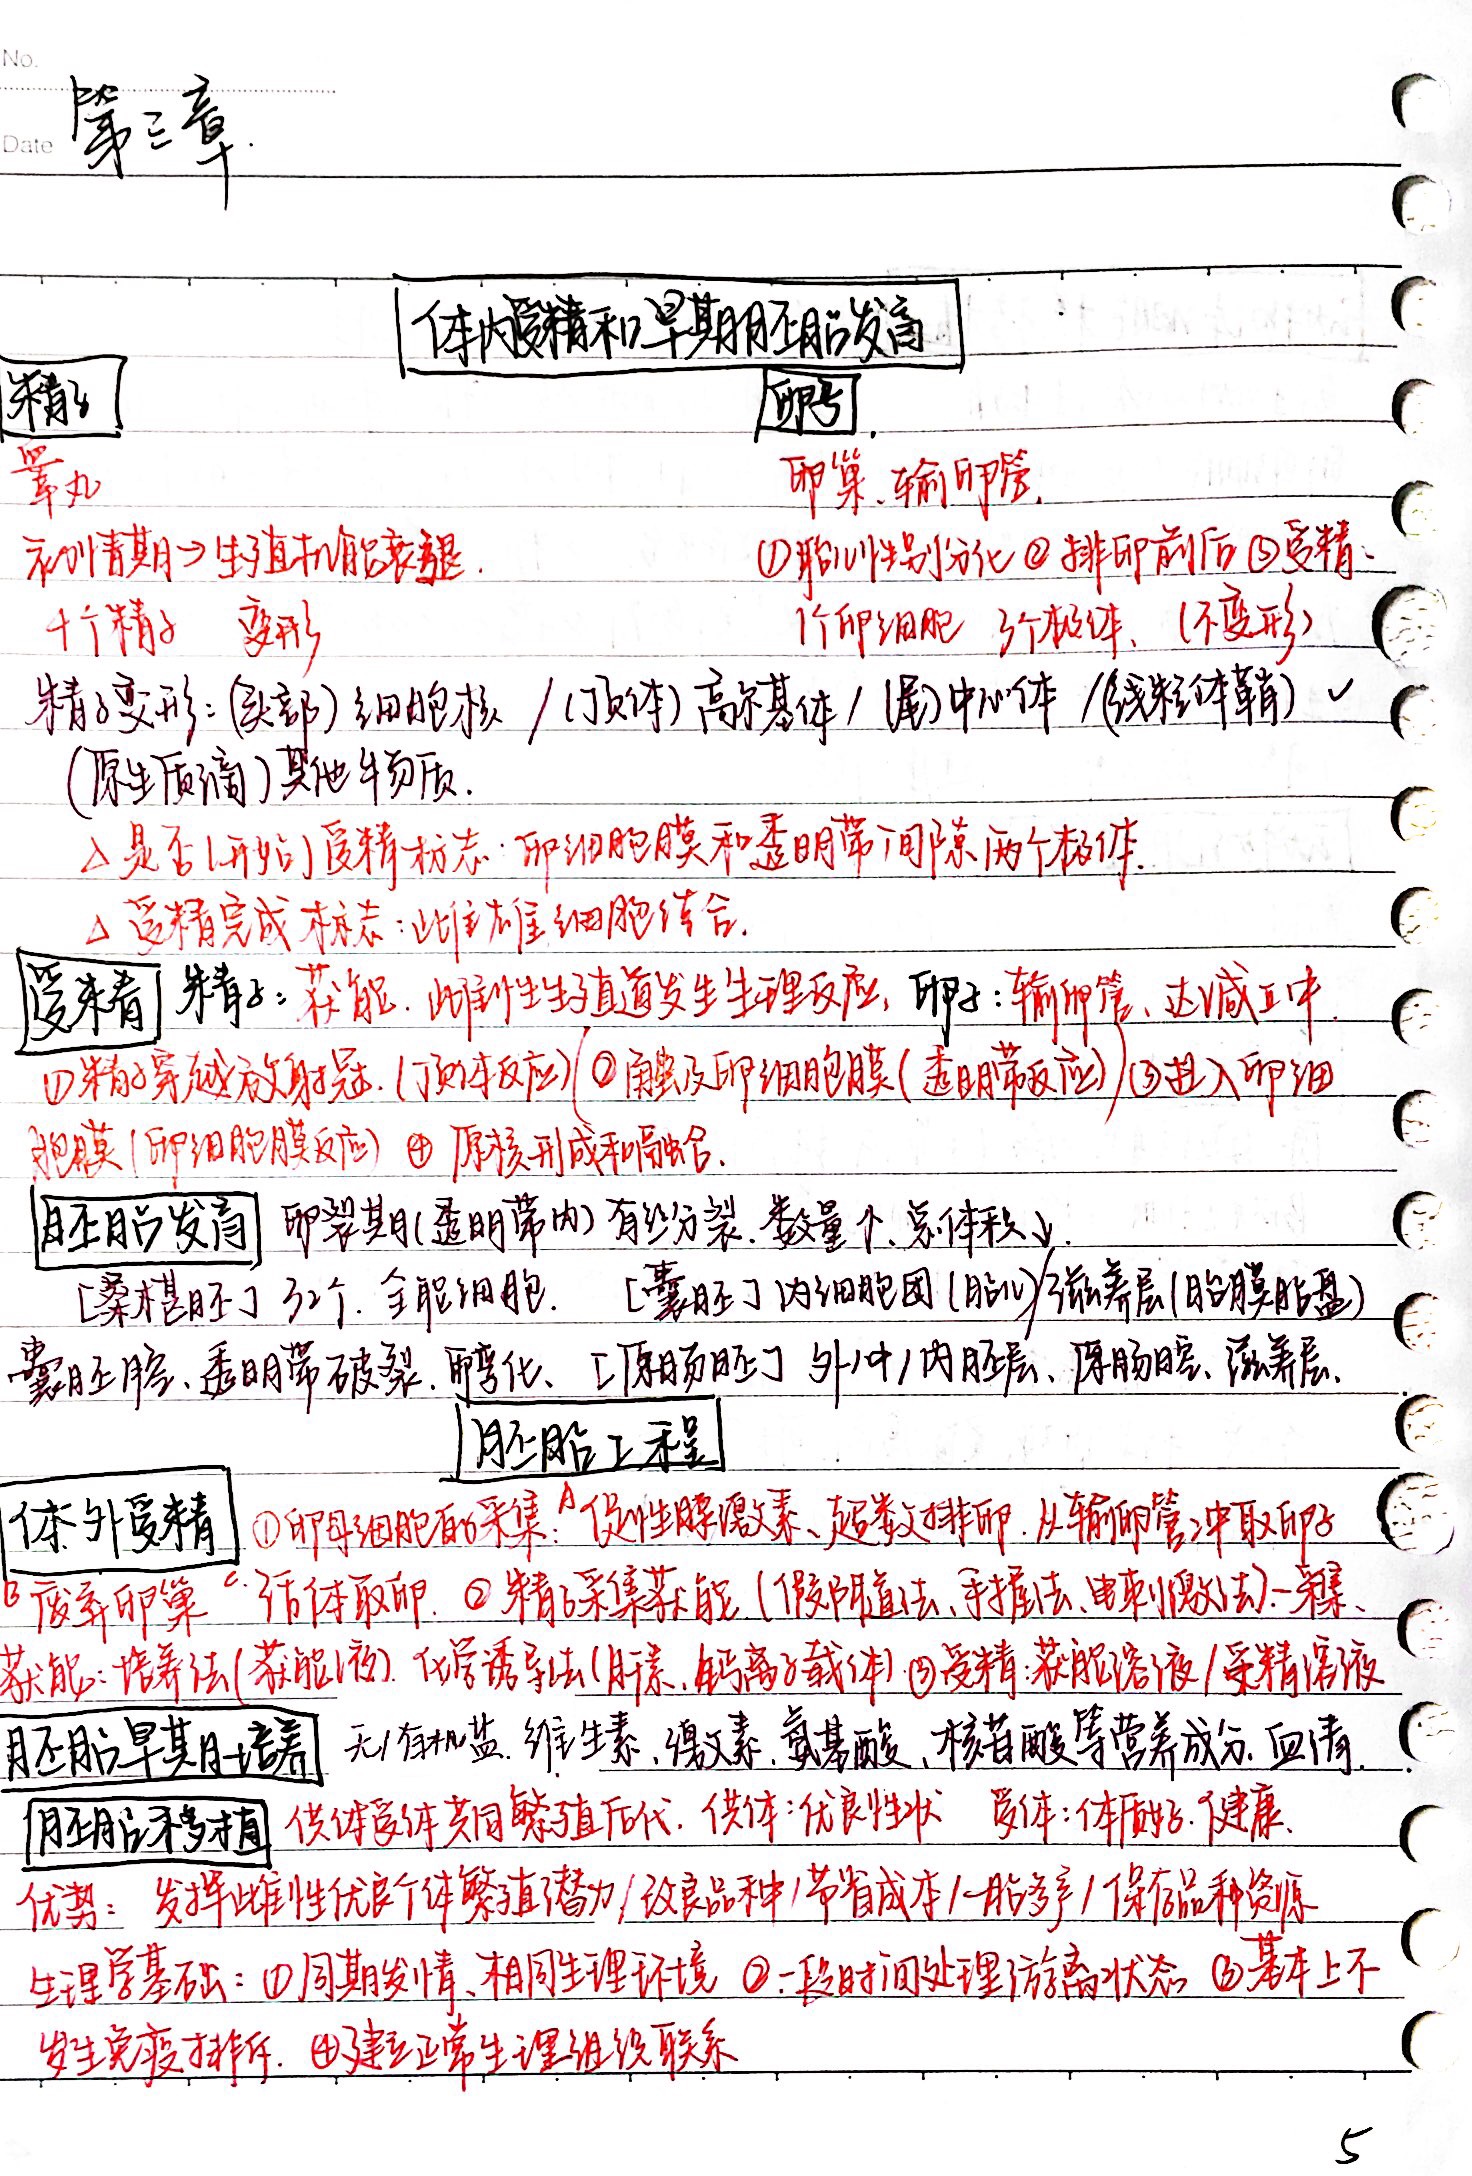 No.
Date
第三章.
体内受精和早期胚胎发育
精子
卵子.
睾丸
卵巢、输卵管.
初情期→生殖机能衰退.
①胎儿性别分化 ②排卵前后 ③受精.
4个精子 变形
1个卵细胞 3个极体、(不变形)
精子变形:(头部)细胞核 /(顶体)高尔基体/(尾)中心体 /(线粒体鞘)✓
(原生质滴)其他物质.
△是否(开始)受精标志:卵细胞膜和透明带间隙两个极体.
△受精完成标志:雌雄细胞结合.
受精 精子:获能.雌性生殖道发生生理反应, 卵子:输卵管、达减Ⅱ中.
①精子穿越放射冠.(顶体反应)(②触及卵细胞膜(透明带反应)/③进入卵细
胞膜(卵细胞膜反应) ④原核形成和融合.
胚胎发育 卵裂期(透明带内)有丝分裂.数量↑、总体积↓.
[桑椹胚] 32个.全能细胞. [囊胚]内细胞团(胎儿)/滋养层(胎膜胎盘)
囊胚腔、透明带破裂.孵化、[原肠胚] 外/中/内胚层、原肠腔、滋养层.
胚胎工程
体外受精 ①卵母细胞的采集:A促性腺激素、超数排卵.从输卵管冲取卵子
B废弃卵巢 C.活体取卵. ②精子采集获能(假阴道法、手握法、电刺激法)-采集、
获能:培养法(获能液).化学诱导法(肝素、钙离子载体)③受精:获能溶液/受精溶液
胚胎早期培养 无/有机盐.维生素、激素、氨基酸、核苷酸等营养成分.血清.
胚胎移植 供体受体共同繁殖后代.供体:优良性状 受体:体质好.健康.
优势: 发挥雌性优良个体繁殖潜力/改良品种/节省成本/一胎多产/保存品种资源
生理学基础:①同期发情、相同生理环境 ②一段时间处理游离状态 ③基本上不
发生免疫排斥. ④建立正常生理组织联系
5